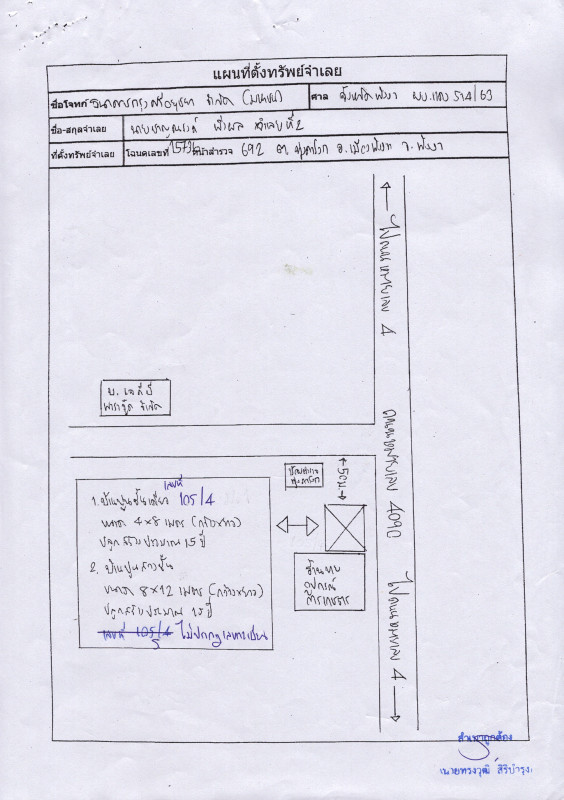 แผนที่ตั้งทรัพย์จำเลย
ชื่อโจทก์ ธนาคารกรุงศรีอยุธยา จำกัด (มหาชน) ศาล จังหวัดพังงา ผบ.แดง 514/63
ชื่อ-สกุลจำเลย นาย จำเลยที่ 2
ที่ตั้งทรัพย์จำเลย โฉนดเลขที่ หน้าสำรวจ 692 ต. อ.เมืองพังงา จ.พังงา
ไปถนนหมายเลข 4
บ. เจดีย์
จำกัด
ถนนหมายเลข 4090
←50ม→
เลขที่
1. บ้านปูนชั้นเดียว 105/4
ขนาด 4×8 เมตร (กว้าง×ยาว)
ปลูกสร้างประมาณ 15 ปี
2. บ้านปูนสองชั้น
ขนาด 8×12 เมตร (กว้าง×ยาว)
ปลูกสร้างประมาณ 15 ปี
เลขที่ 105/4 ไม่ปรากฏเลขทะเบียน
5
ร้านขาย
อุปกรณ์
การเกษตร
ไปถนนหมายเลข 4
สำเนาถูกต้อง
(นายทรงวุฒิ สิริบำรุง)